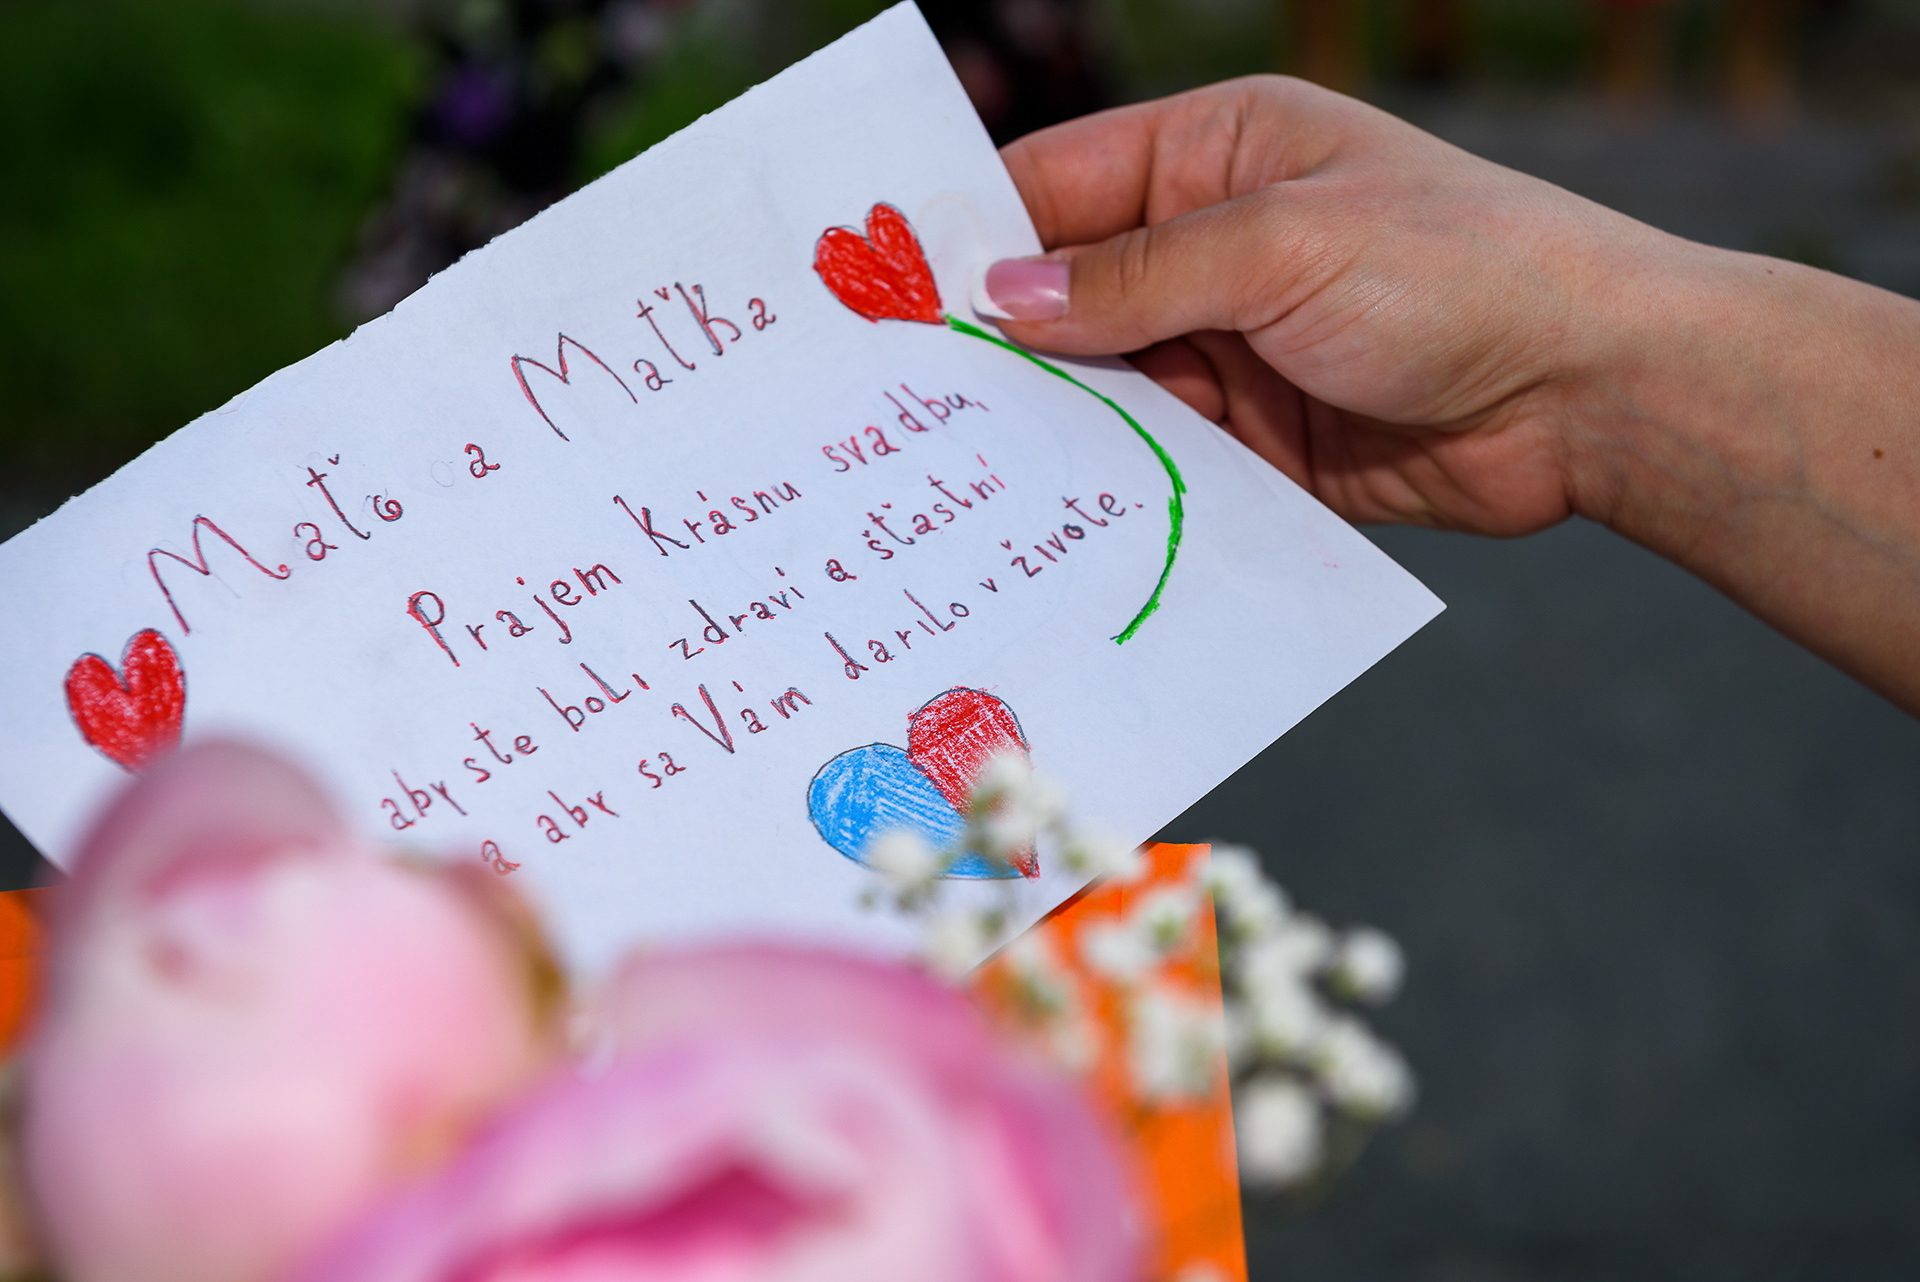 Maťo a Maťka
Prajem krásnu svadbu,
aby ste boli zdraví a šťastní
a aby sa Vám darilo v živote.